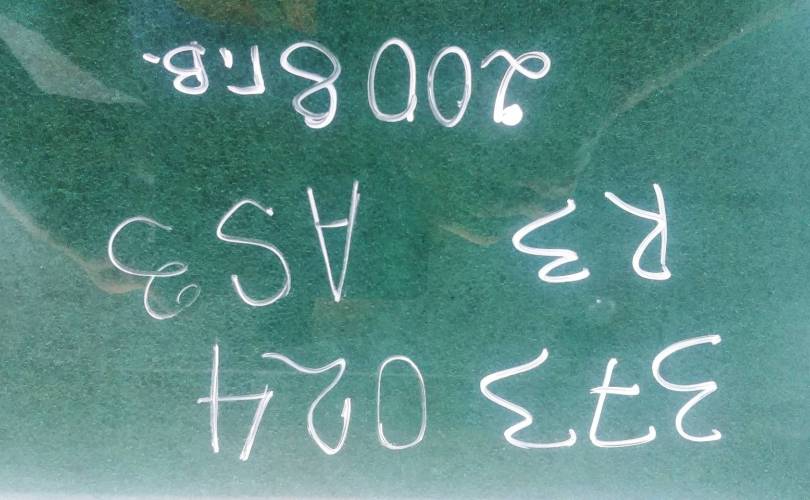 373 024
R3 AS3
2008 г.в.